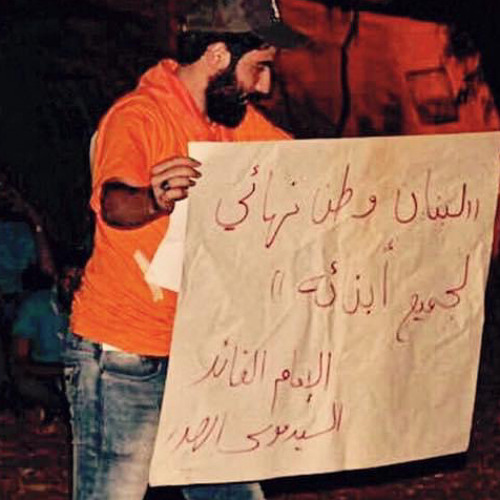 "لبنان وطن نهائي
لجميع أبنائه"
الإمام القائد
السيد موسى الصدر